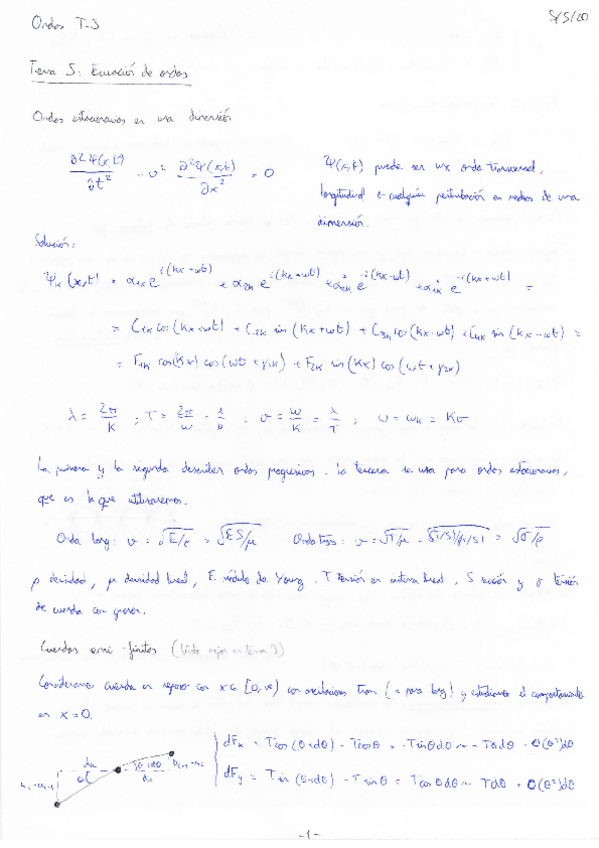 Ondas T-5
5/5/20
Tema 5: Ecuación de ondas
Ondas estacionarias en una dimensión
∂²Ψ(x,t)/∂t² - v² ∂²Ψ(x,t)/∂x² = 0
Ψ(x,t) puede ser una onda transversal,
longitudinal o cualquier perturbación en medios de una
dimensión.
Solución:
Ψk(x,t) = α1k e^{i(kx-ωt)} + α2k e^{i(kx+ωt)} + α2k* e^{-i(kx-ωt)} + α1k* e^{-i(kx+ωt)} =
= C1k cos(kx+ωt) + C2k sin(kx+ωt) + C3k cos(kx-ωt) + C4k sin(kx-ωt) =
= F1k cos(kx) cos(ωt+γ1k) + F2k sin(kx) cos(ωt+γ2k)
λ = 2π/k ; T = 2π/ω = λ/v ; v = ω/k = λ/T ; ω = ωk = kv
La primera y la segunda describen ondas progresivas. La tercera se usa para ondas estacionarias,
que es la que utilizaremos.
Onda long: v = √E/ρ = √ES/μ Onda trans: v = √T/μ = √(T/S)/(μ/S) = √σ/ρ
ρ densidad, μ densidad lineal, E módulo de Young, T tensión en lineal, S sección y σ tensión
de cuerda con grosor.
Cuerdas semi-finitas (Vide mejor en tema 3)
Consideramos cuerda en reposo con x∈[0,∞) con oscilaciones tran (= para long) y estudiamos el comportamiento
en x=0.
dFx = T cos(θ+dθ) - T cosθ = -T sinθdθ ≈ -Tθdθ ~ O(θ²)dθ
dFy = T sin(θ+dθ) - T sinθ = T cosθdθ ≈ Tdθ - O(θ²)dθ
-1-